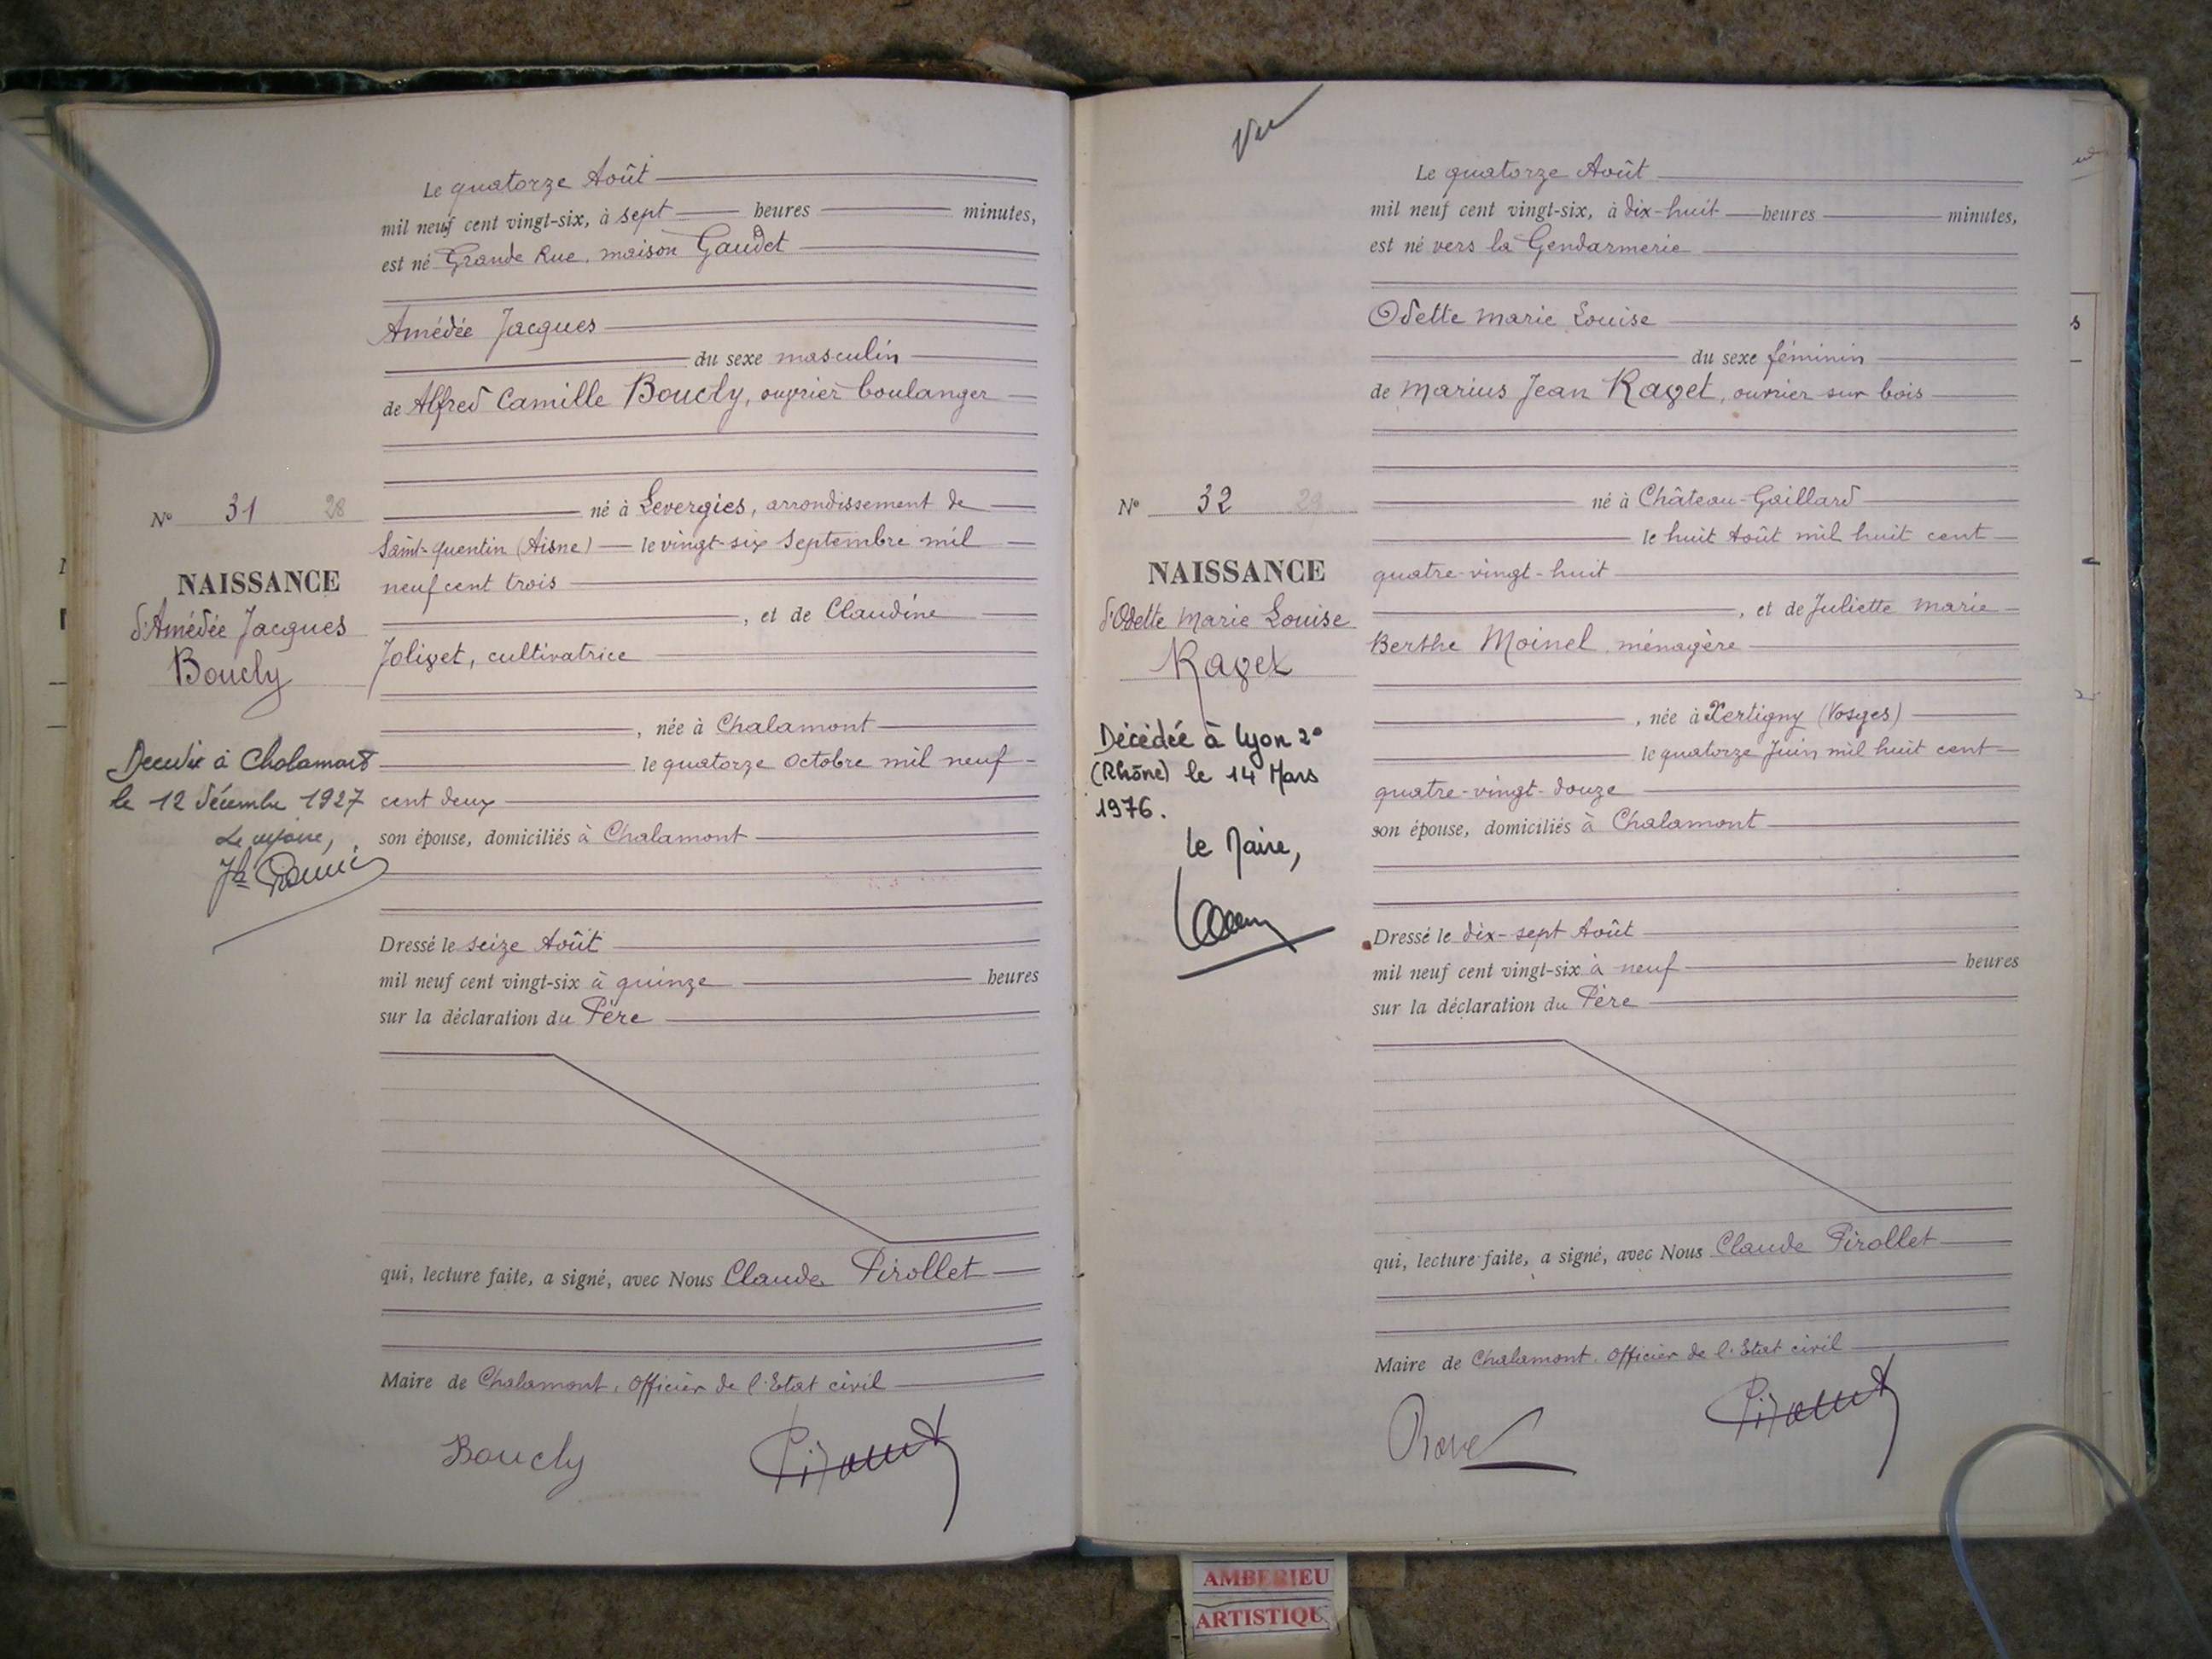 Le quatorze Août
mil neuf cent vingt-six, à sept heures minutes,
est né Grande Rue, maison Gaudet
Amédée Jacques
du sexe masculin
de Alfred Camille Boucly, ouvrier boulanger
né à Levergies, arrondissement de
Saint-quentin (Aisne) le vingt-six Septembre mil
neuf cent trois
, et de Claudine
Jolivet, cultivatrice
, née à Chalamont
le quatorze Octobre mil neuf
cent deux
son épouse, domiciliés à Chalamont
Dressé le seize Août
mil neuf cent vingt-six à quinze heures
sur la déclaration du Père
qui, lecture faite, a signé, avec Nous Claude Pirollet
Maire de Chalamont, Officier de l'Etat civil
Boucly
N° 31 28
NAISSANCE
d'Amédée Jacques
Boucly
Décédé à Chalamont
le 12 décembre 1927
Le Maire,
Vu
Le quatorze Août
mil neuf cent vingt-six, à dix-huit heures minutes,
est né vers la Gendarmerie
Odette Marie Louise
du sexe féminin
de Marius Jean Ravet, ouvrier sur bois
né à Château-Gaillard
le huit Août mil huit cent
quatre-vingt-huit
, et de Juliette Marie
Berthe Moinel, ménagère
, née à Xertigny (Vosges)
le quatorze Juin mil huit cent
quatre-vingt-douze
son épouse, domiciliés à Chalamont
Dressé le dix-sept Août
mil neuf cent vingt-six à neuf heures
sur la déclaration du Père
qui, lecture faite, a signé, avec Nous Claude Pirollet
Maire de Chalamont, Officier de l'Etat civil
N° 32 29
NAISSANCE
d'Odette Marie Louise
Ravet
Décédée à Lyon 2°
(Rhône) le 14 Mars
1976.
Le Maire,
AMBERIEU
ARTISTIQU